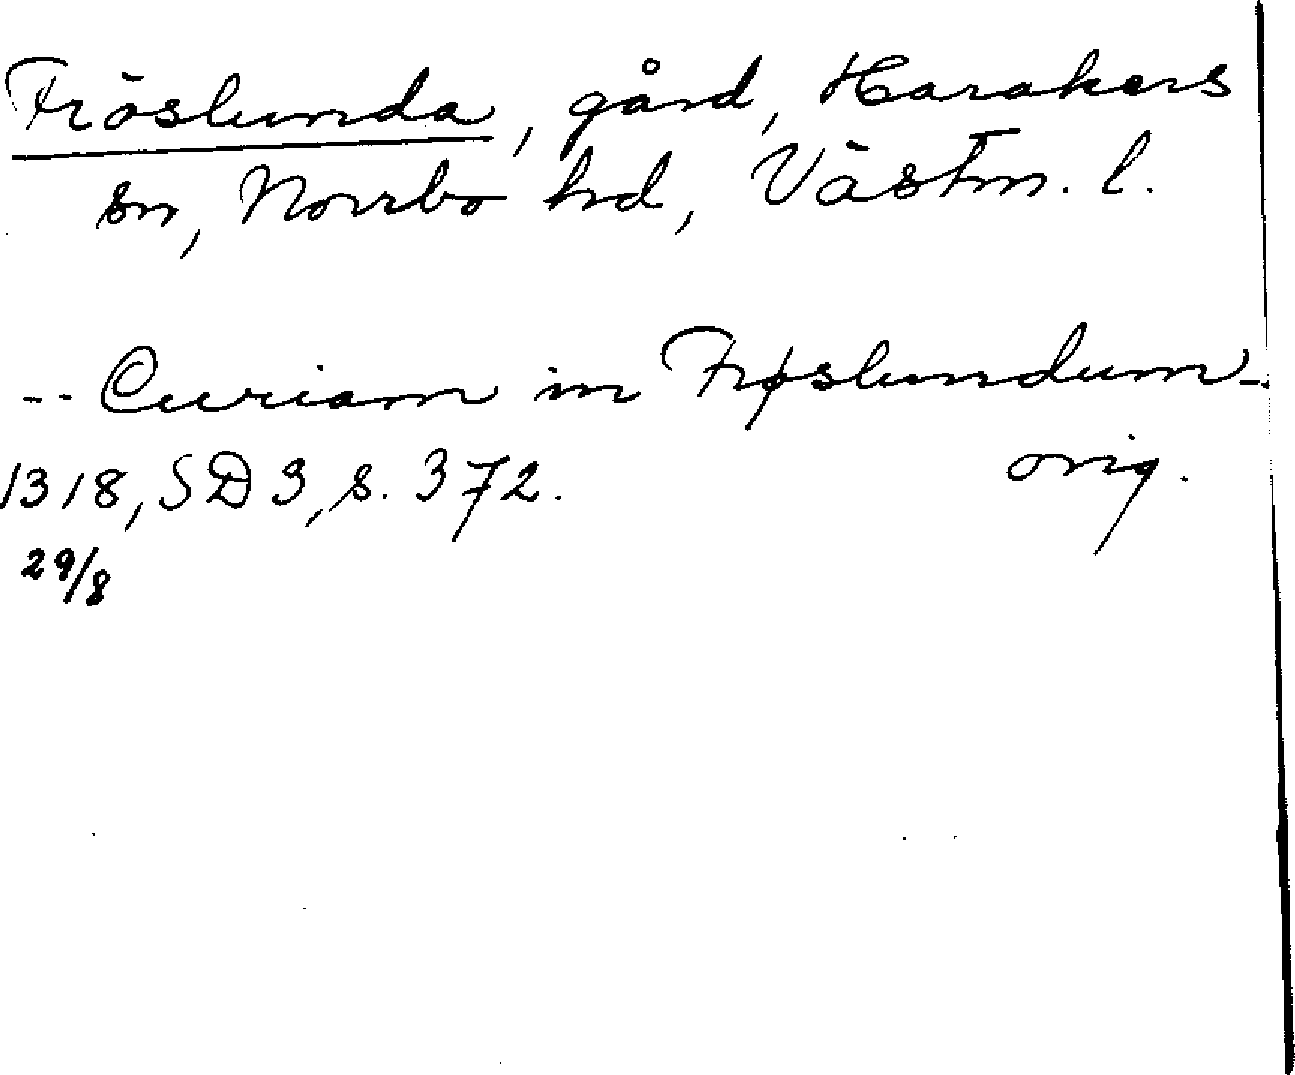 Fröslunda, gård, Harakers
sn, Norrbo hd, Västm. l.
-- Curiam in Frøslundum --
1318, SD 3, s. 372. orig.
29/8